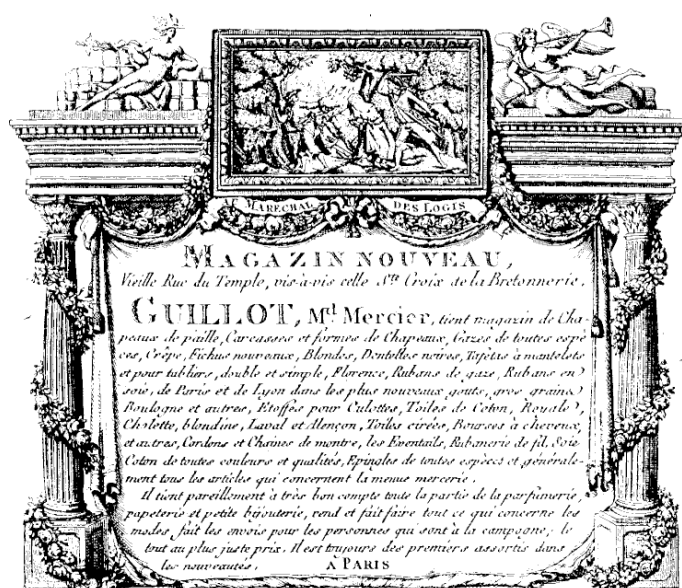 MARECHAL DES LOGIS
MAGAZIN NOUVEAU,
Vieille Rue du Temple, vis-à-vis celle Ste. Croix de la Bretonnerie.
GUILLOT, Md. Mercier, tient magazin de Cha-
peaux de paille, Carcasses et formes de Chapeaux, Gazes de toutes espè
ces, Crêpe, Fichus nouveaux, Blondes, Dentelles noires, Tafetas à mantelets
et pour tabliers, double et simple, Florence, Rubans de gaze, Rubans en
soie, de Paris et de Lyon dans les plus nouveaux gouts, gros grains
Boulogne et autres, Etoffes pour Culottes, Toiles de Coton, Royale,
Cholette, blondine, Laval et Alençon, Toiles cirées, Bourses à cheveux,
et autres, Cordons et Chaines de montre, les Eventails, Rubanerie de fil, Soie
Coton de toutes couleurs et qualités, Epingles de toutes espèces et générale-
ment tous les articles qui concernent la menue mercerie.
Il tient pareillement à très bon compte toute la partie de la parfumerie,
papeterie et petite bijouterie, vend et fait faire tout ce qui concerne les
modes, fait les envois pour les personnes qui sont à la campagne; le
tout au plus juste prix. Il est toujours des premiers assortis dans
les nouveautés. A PARIS